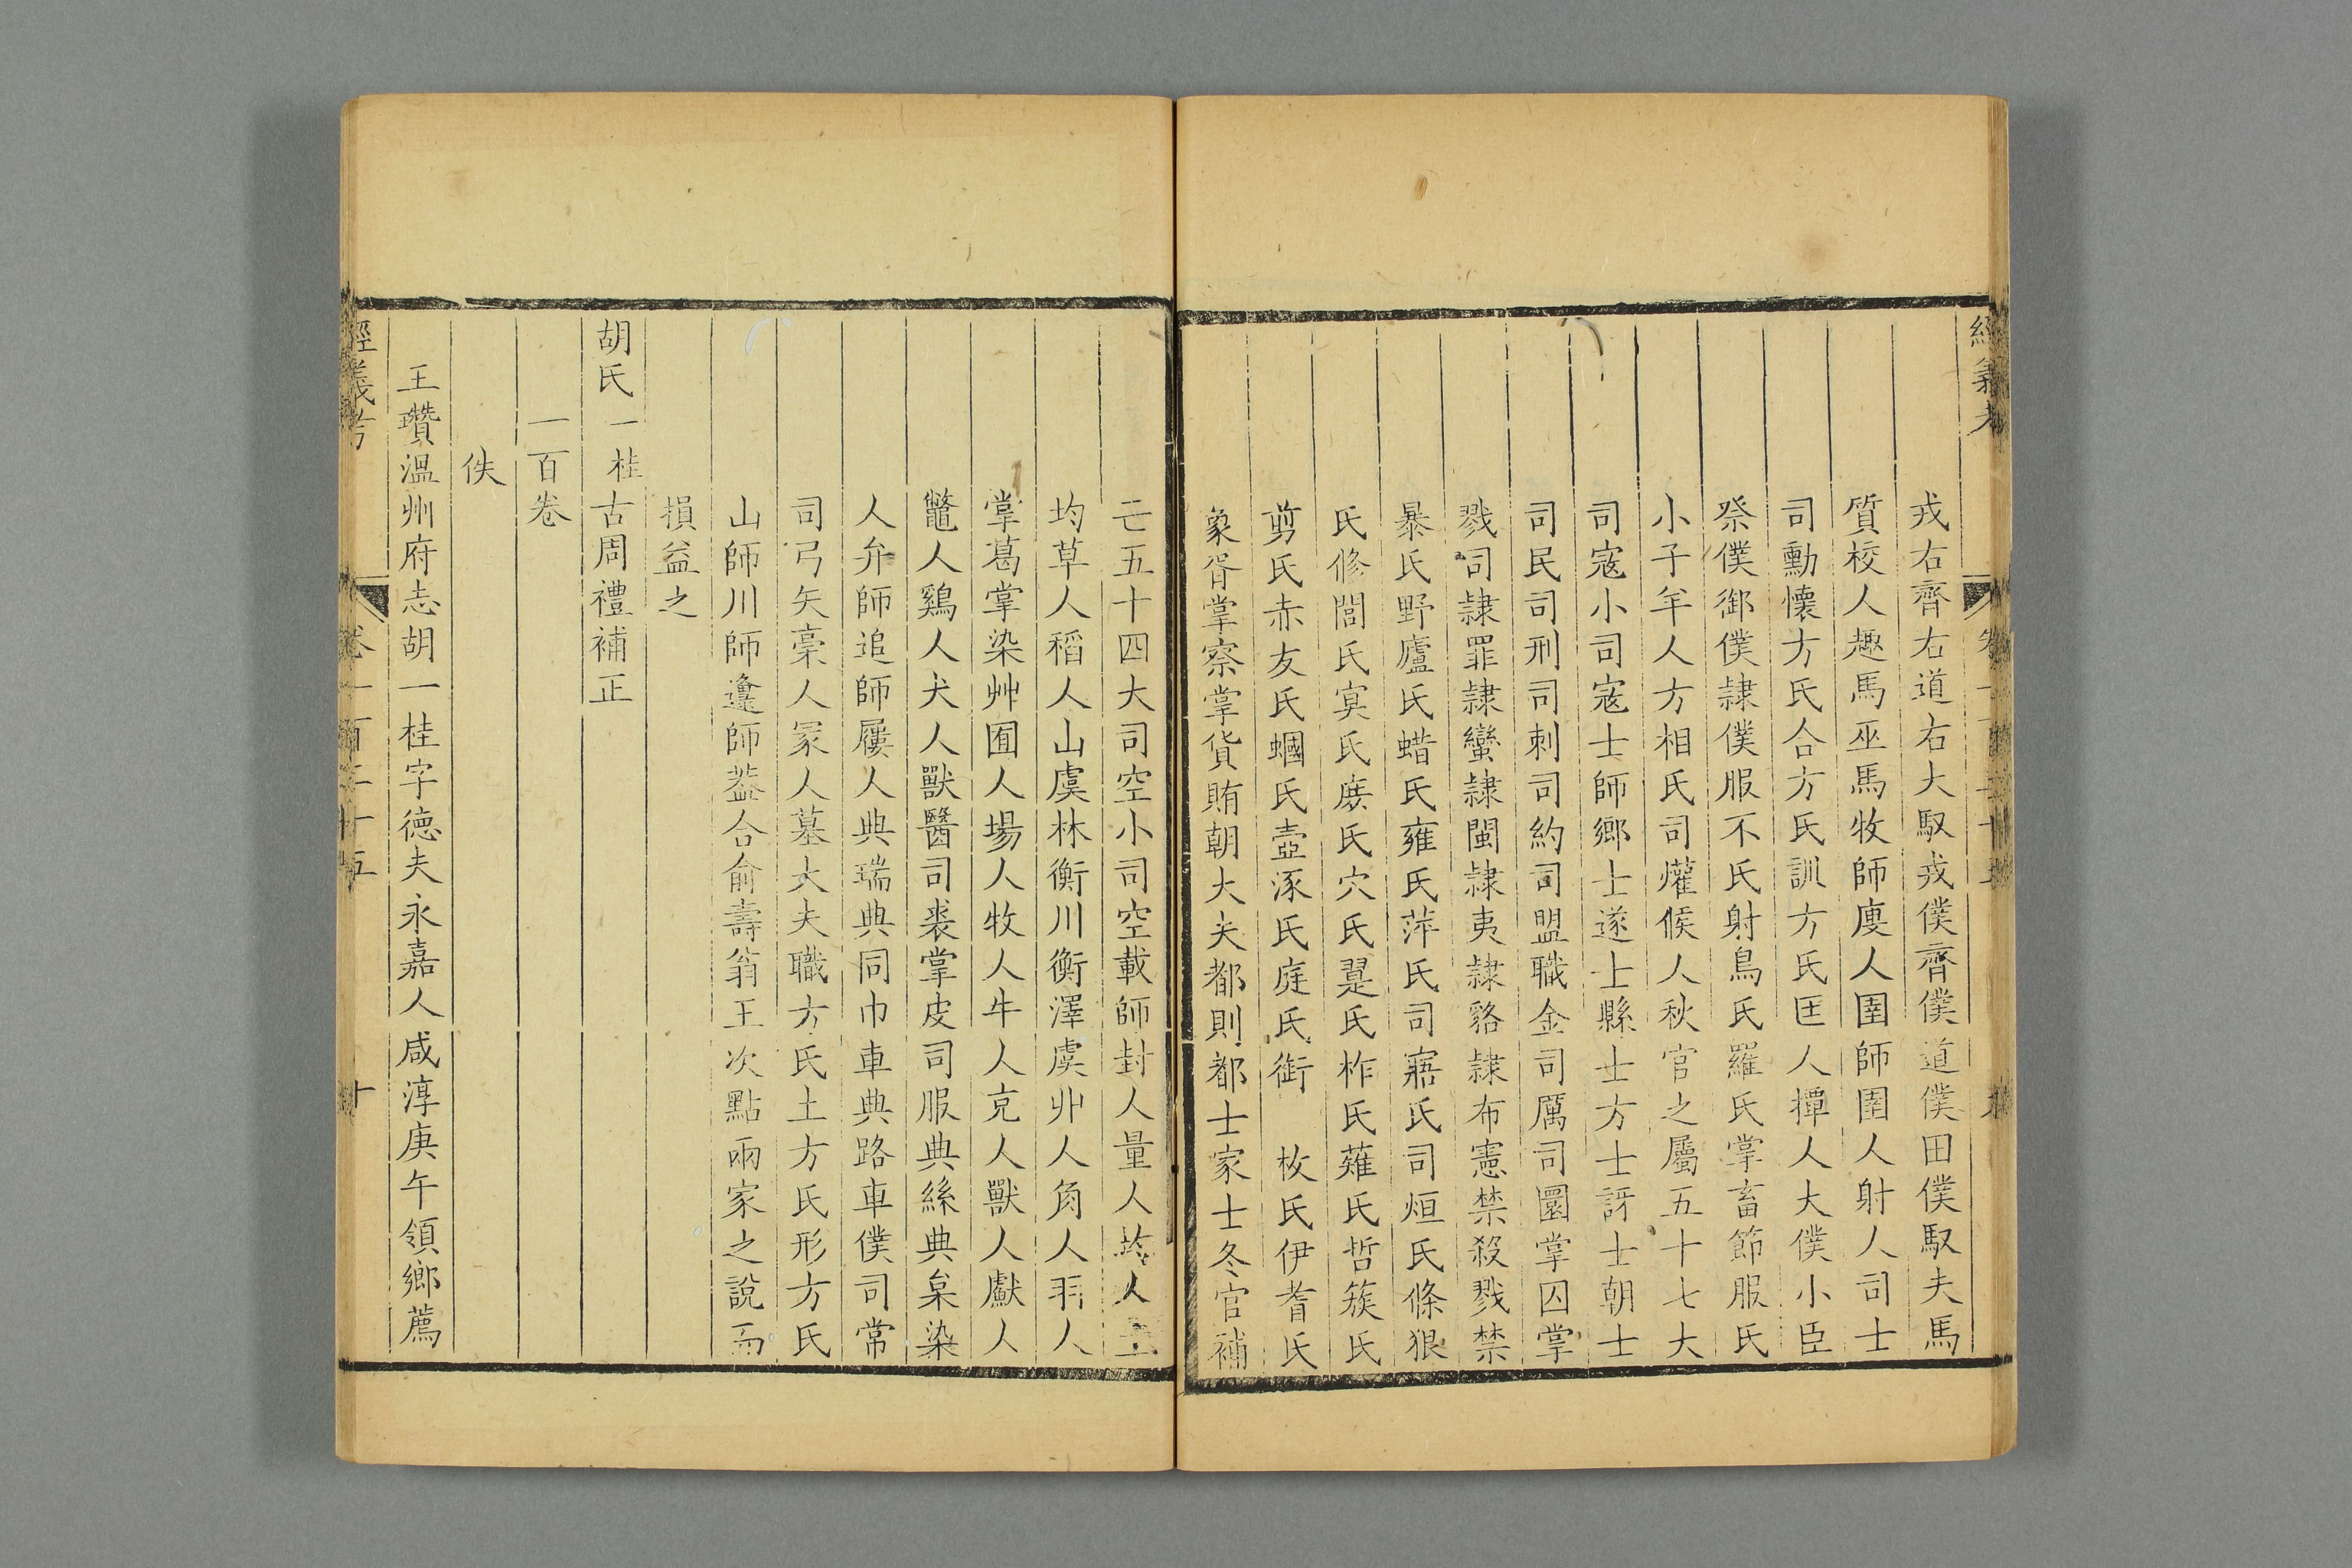 戎右齊右道右大馭戎僕齊僕道僕田僕馭夫馬
質校人趣馬巫馬牧師廋人圉師圉人射人司士
司勳懷方氏合方氏訓方氏匡人撢人大僕小臣
祭僕御僕隷僕服不氏射鳥氏羅氏掌畜節服氏
小子羊人方相氏司爟候人秋官之屬五十七大
司寇小司寇士師鄉士遂士縣士方士訝士朝士
司民司刑司刺司約司盟職金司厲司圜掌囚掌
戮司隷罪隷蠻隷閩隷夷隷貉隷布憲禁殺戮禁
暴氏野廬氏蜡氏雍氏萍氏司寤氏司烜氏條狼
氏修閭氏冥氏庶氏穴氏翨氏柞氏薙氏哲簇氏
剪氏赤友氏蟈氏壺涿氏庭氏銜 枚氏伊耆氏
象胥掌察掌貨賄朝大夫都則都士家士冬官補
亡五十四大司空小司空載師封人量人均人土
均草人稻人山虞林衡川衡澤虞丱人角人羽人
掌葛掌染艸囿人場人牧人牛人充人獸人䱷人
鼈人鷄人犬人獸醫司裘掌皮司服典絲典枲染
人弁師追師屨人典瑞典同巾車典路車僕司常
司弓矢稾人冢人墓大夫職方氏土方氏形方氏
山師川師邍師葢合俞壽翁王次點兩家之說而
損益之
胡氏一桂古周禮補正
一百卷
佚
王瓚溫州府志胡一桂字德夫永嘉人咸淳庚午領鄉薦
經義考 卷一百二十五 十